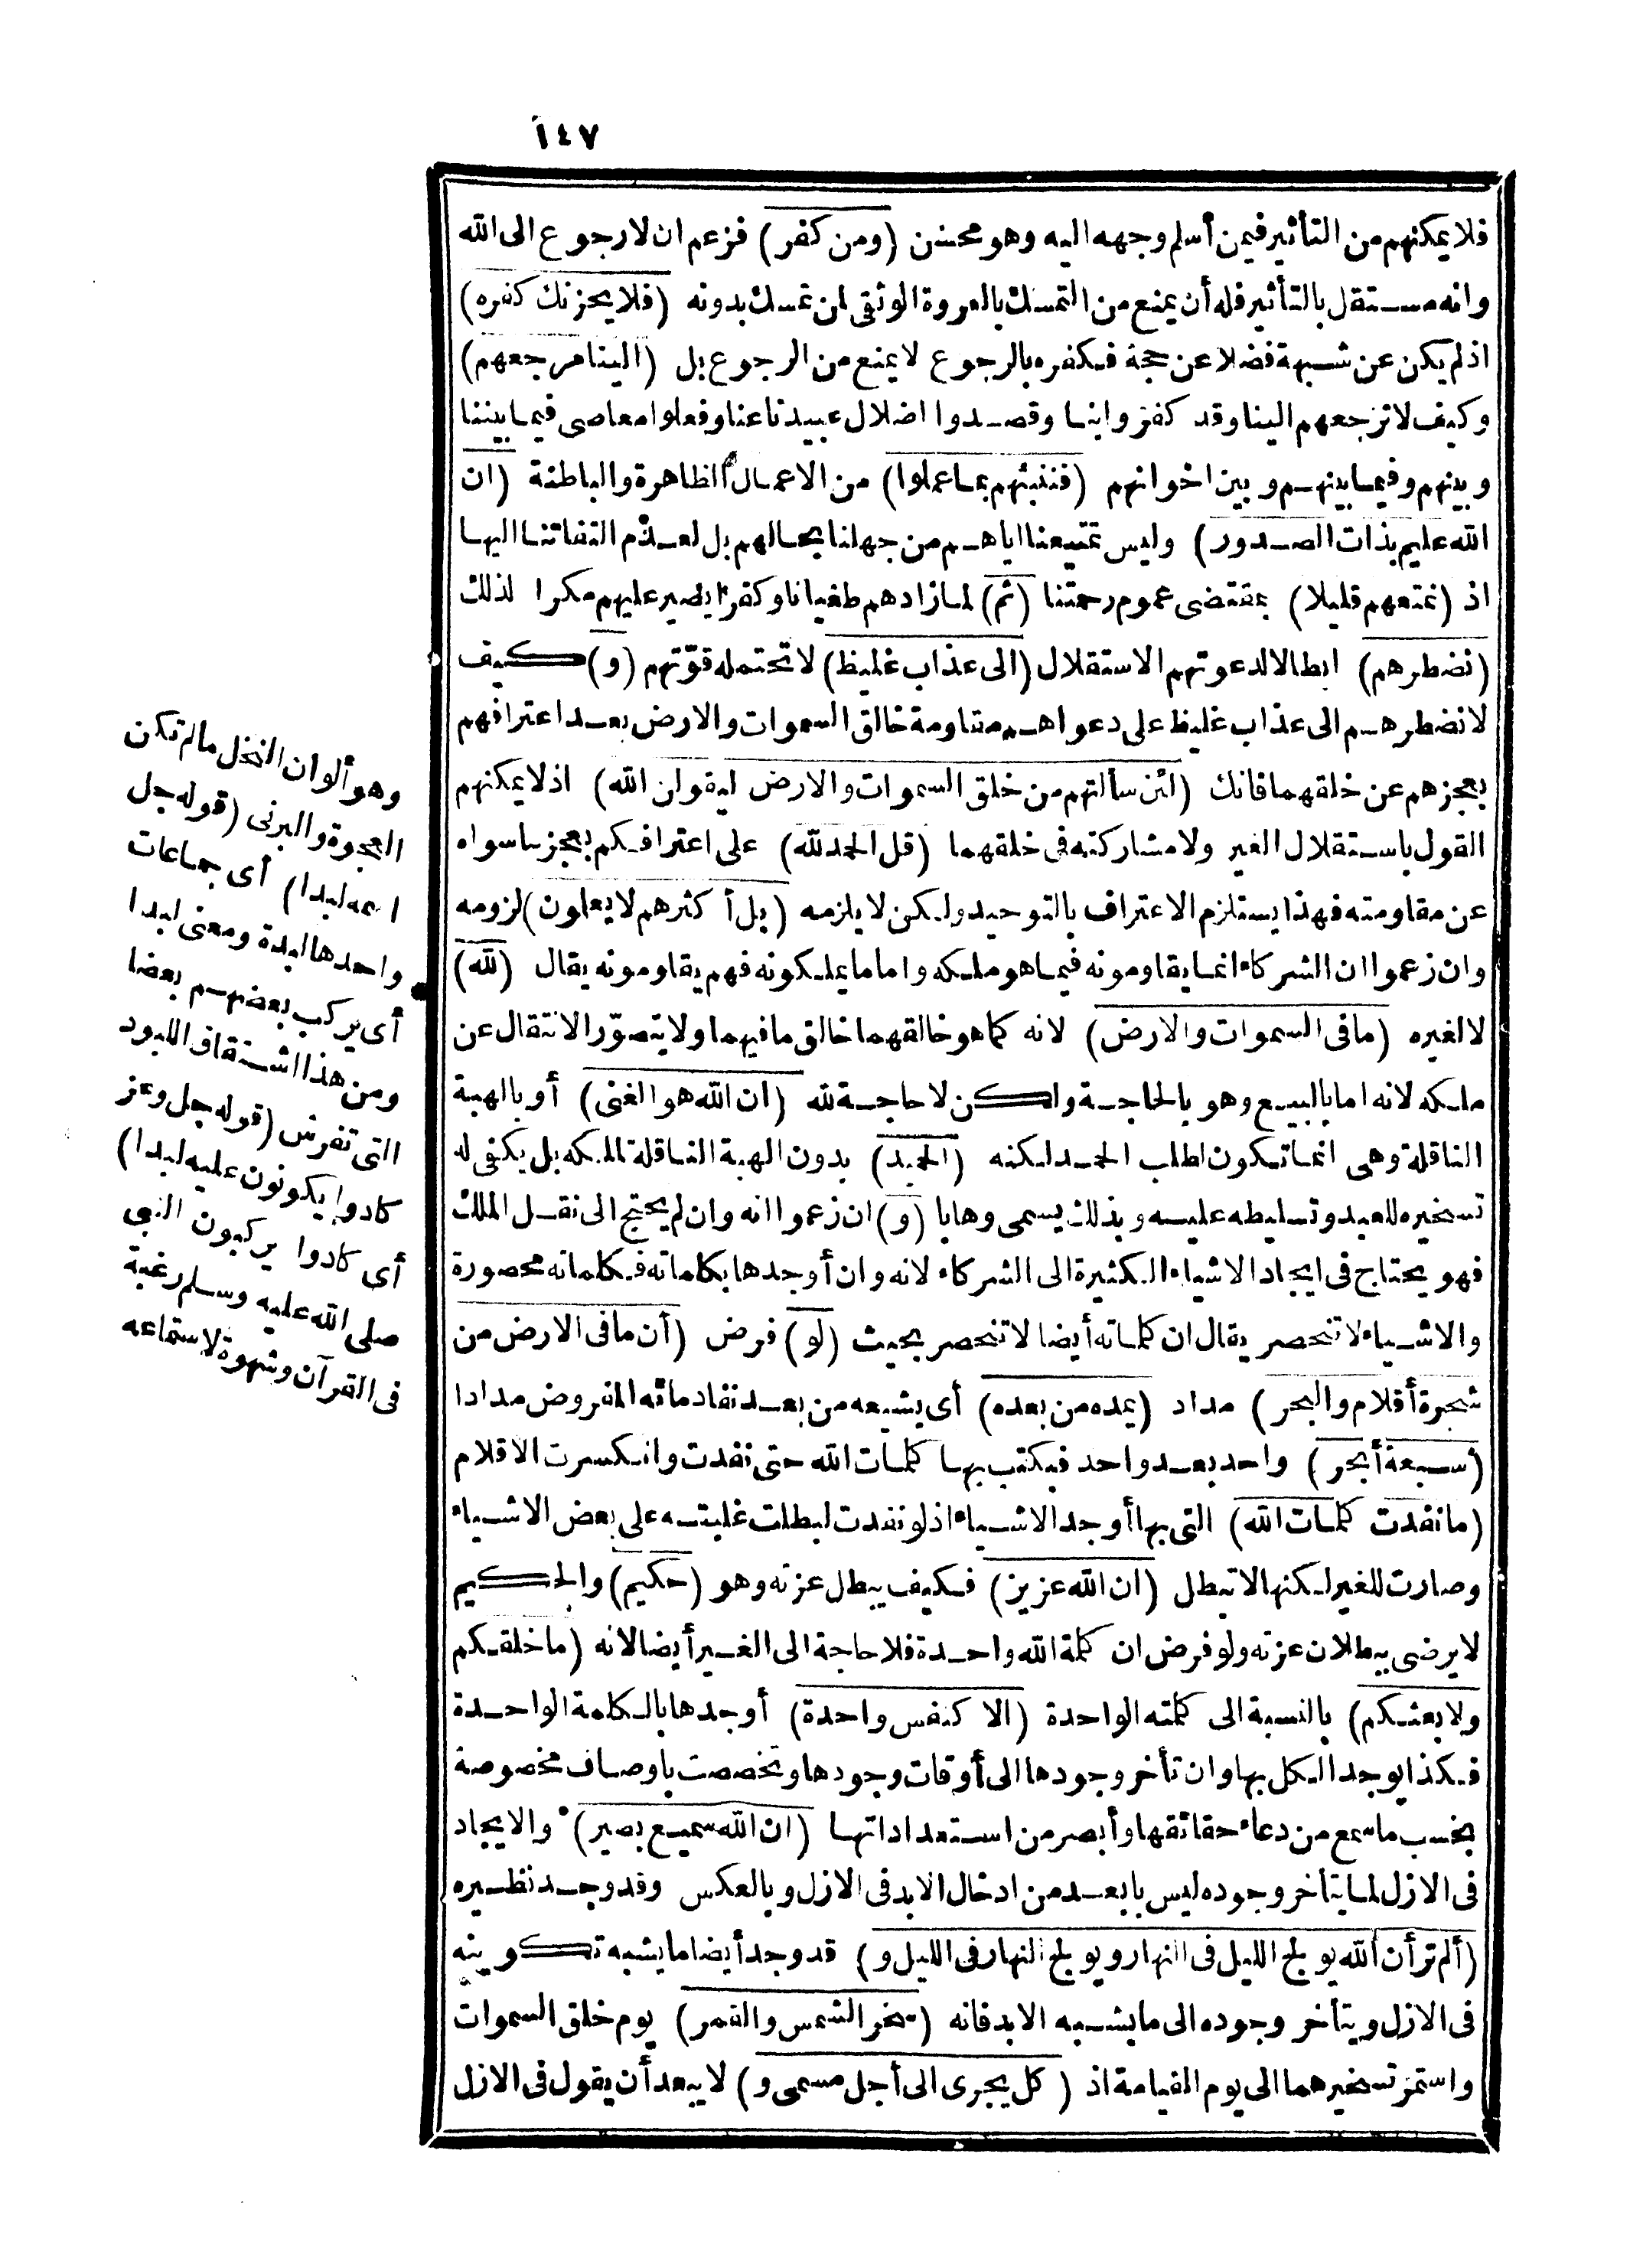 ١٤٧
فلا يمكنهم من التأثير فيمن أسلم وجهه اليه وهو محسن (ومن كفر) فزعم ان لا رجوع الى الله
وانه مستقل بالتأثير فله أن يمنع من التمسك بالعروة الوثقى لمن تمسك بدونه (فلا يحزنك كفره)
اذ لم يكن عن شبهة فضلا عن حجة فكفره بالرجوع لا يمنع من الرجوع بل (الينا مرجعهم)
وكيف لا نرجعهم الينا وقد كفروا بنا وقصدوا اضلال عبيدنا عنا وفعلوا معاصى فيما بيننا
وبينهم وفيما بينهم وبين اخوانهم (فننبئهم بما عملوا) من الاعمال الظاهرة والباطنة (ان
الله عليم بذات الصدور) وليس تمتيعنا اياهم من جهلنا بحالهم بل لعدم التفاتنا اليها
اذ (نمتعهم قليلا) بمقتضى عموم رحمتنا (ثم) لما زادهم طغيانا وكفرا يصير عليهم مكرا لذلك
(نضطرهم) ابطالا لدعوتهم الاستقلال (الى عذاب غليظ) لا تحتمله قوّتهم (و) كيف
لا نضطرهم الى عذاب غليظ على دعواهم مقاومة خالق السموات والارض بعد اعترافهم
بعجزهم عن خلقهما فانك (لئن سألتهم من خلق السموات والارض ليقولن الله) اذ لا يمكنهم
القول باستقلال الغير ولا مشاركته فى خلقهما (قل الحمد لله) على اعترافكم بعجز ما سواه
عن مقاومته فهذا يستلزم الاعتراف بالتوحيد ولكن لا يلزمه (بل أكثرهم لا يعلمون) لزومه
وان زعموا ان الشركاء انما يقاومونه فيما هو ملكه واما ما يملكونه فهم يقاومونه يقال (لله)
لا لغيره (ما فى السموات والارض) لانه كما هو خالقهما خالق ما فيهما ولا يتصوّر الانتقال عن
ملكه لانه اما بالبيع وهو بالحاجة ولكن لا حاجة لله (ان الله هو الغنى) أو بالهبة
الناقلة وهى انما تكون لطلب الحمد لكنه (الحميد) بدون الهبة الناقلة لملكه بل يكفى له
تسخيره للعبد وتسليطه عليه وبذلك يسمى وهابا (و) ان زعموا انه وان لم يحتج الى نقل الملك
فهو يحتاج فى ايجاد الاشياء الكثيرة الى الشركاء لانه وان أوجدها بكلماته فكلماته محصورة
والاشياء لا تنحصر يقال ان كلماته أيضا لا تنحصر بحيث (لو) فرض (أن ما فى الارض من
شجرة أقلام والبحر) مداد (يمده من بعده) أى يشيعه من بعد نفاد مائه المفروض مدادا
(سبعة أبحر) واحد بعد واحد فيكتب بها كلمات الله حتى نفدت وانكسرت الاقلام
(ما نفدت كلمات الله) التى بها أوجد الاشياء اذ لو نفدت لبطلت غلبته على بعض الاشياء
وصارت للغير لكنها لا تبطل (ان الله عزيز) فكيف يبطل عزته وهو (حكيم) والحكيم
لا يرضى ببطلان عزته ولو فرض ان كلمة الله واحدة فلا حاجة الى الغير أيضا لانه (ما خلقكم
ولا بعثكم) بالنسبة الى كلمته الواحدة (الا كنفس واحدة) أوجدها بالكلمة الواحدة
فكذا يوجد الكل بها وان تأخر وجودها الى أوقات وجودها وتخصصت بأوصاف مخصوصة
بحسب ما سمع من دعاء حقائقها وأبصر من استعداداتها (ان الله سميع بصير) والايجاد
فى الازل لما يتأخر وجوده ليس بابعد من ادخال الابد فى الازل وبالعكس وقد وجد نظيره
(ألم تر أن الله يولج الليل فى النهار ويولج النهار فى الليل و) قد وجد أيضا ما يشبه تكوينه
فى الازل ويتأخر وجوده الى ما يشبه الابد فانه (سخر الشمس والقمر) يوم خلق السموات
واستمر تسخيرهما الى يوم القيامة اذ (كل يجرى الى أجل مسمى و) لا يبعد أن يقول فى الازل
وهو ألوان النخل ما لم تكن
العجوة والبرنى (قوله جل
اسمه لبدا) أى جماعات
واحدها لبدة ومعنى لبدا
أى يركب بعضهم بعضا
ومن هذا اشتقاق اللبود
التى تفرش (قوله جل وعز
كادوا يكونون عليه لبدا)
أى كادوا يركبون النبى
صلى الله عليه وسلم رغبة
فى القرآن وشهوة لاستماعه